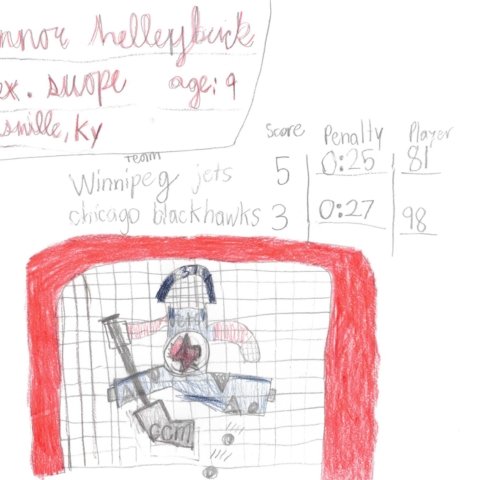 nnor helleybuck
ex. swope age: 9
sville, Ky
Team Score Penalty Player
Winnipeg jets 5 0:25 81
chicago blackhawks 3 0:27 98
37
ccm